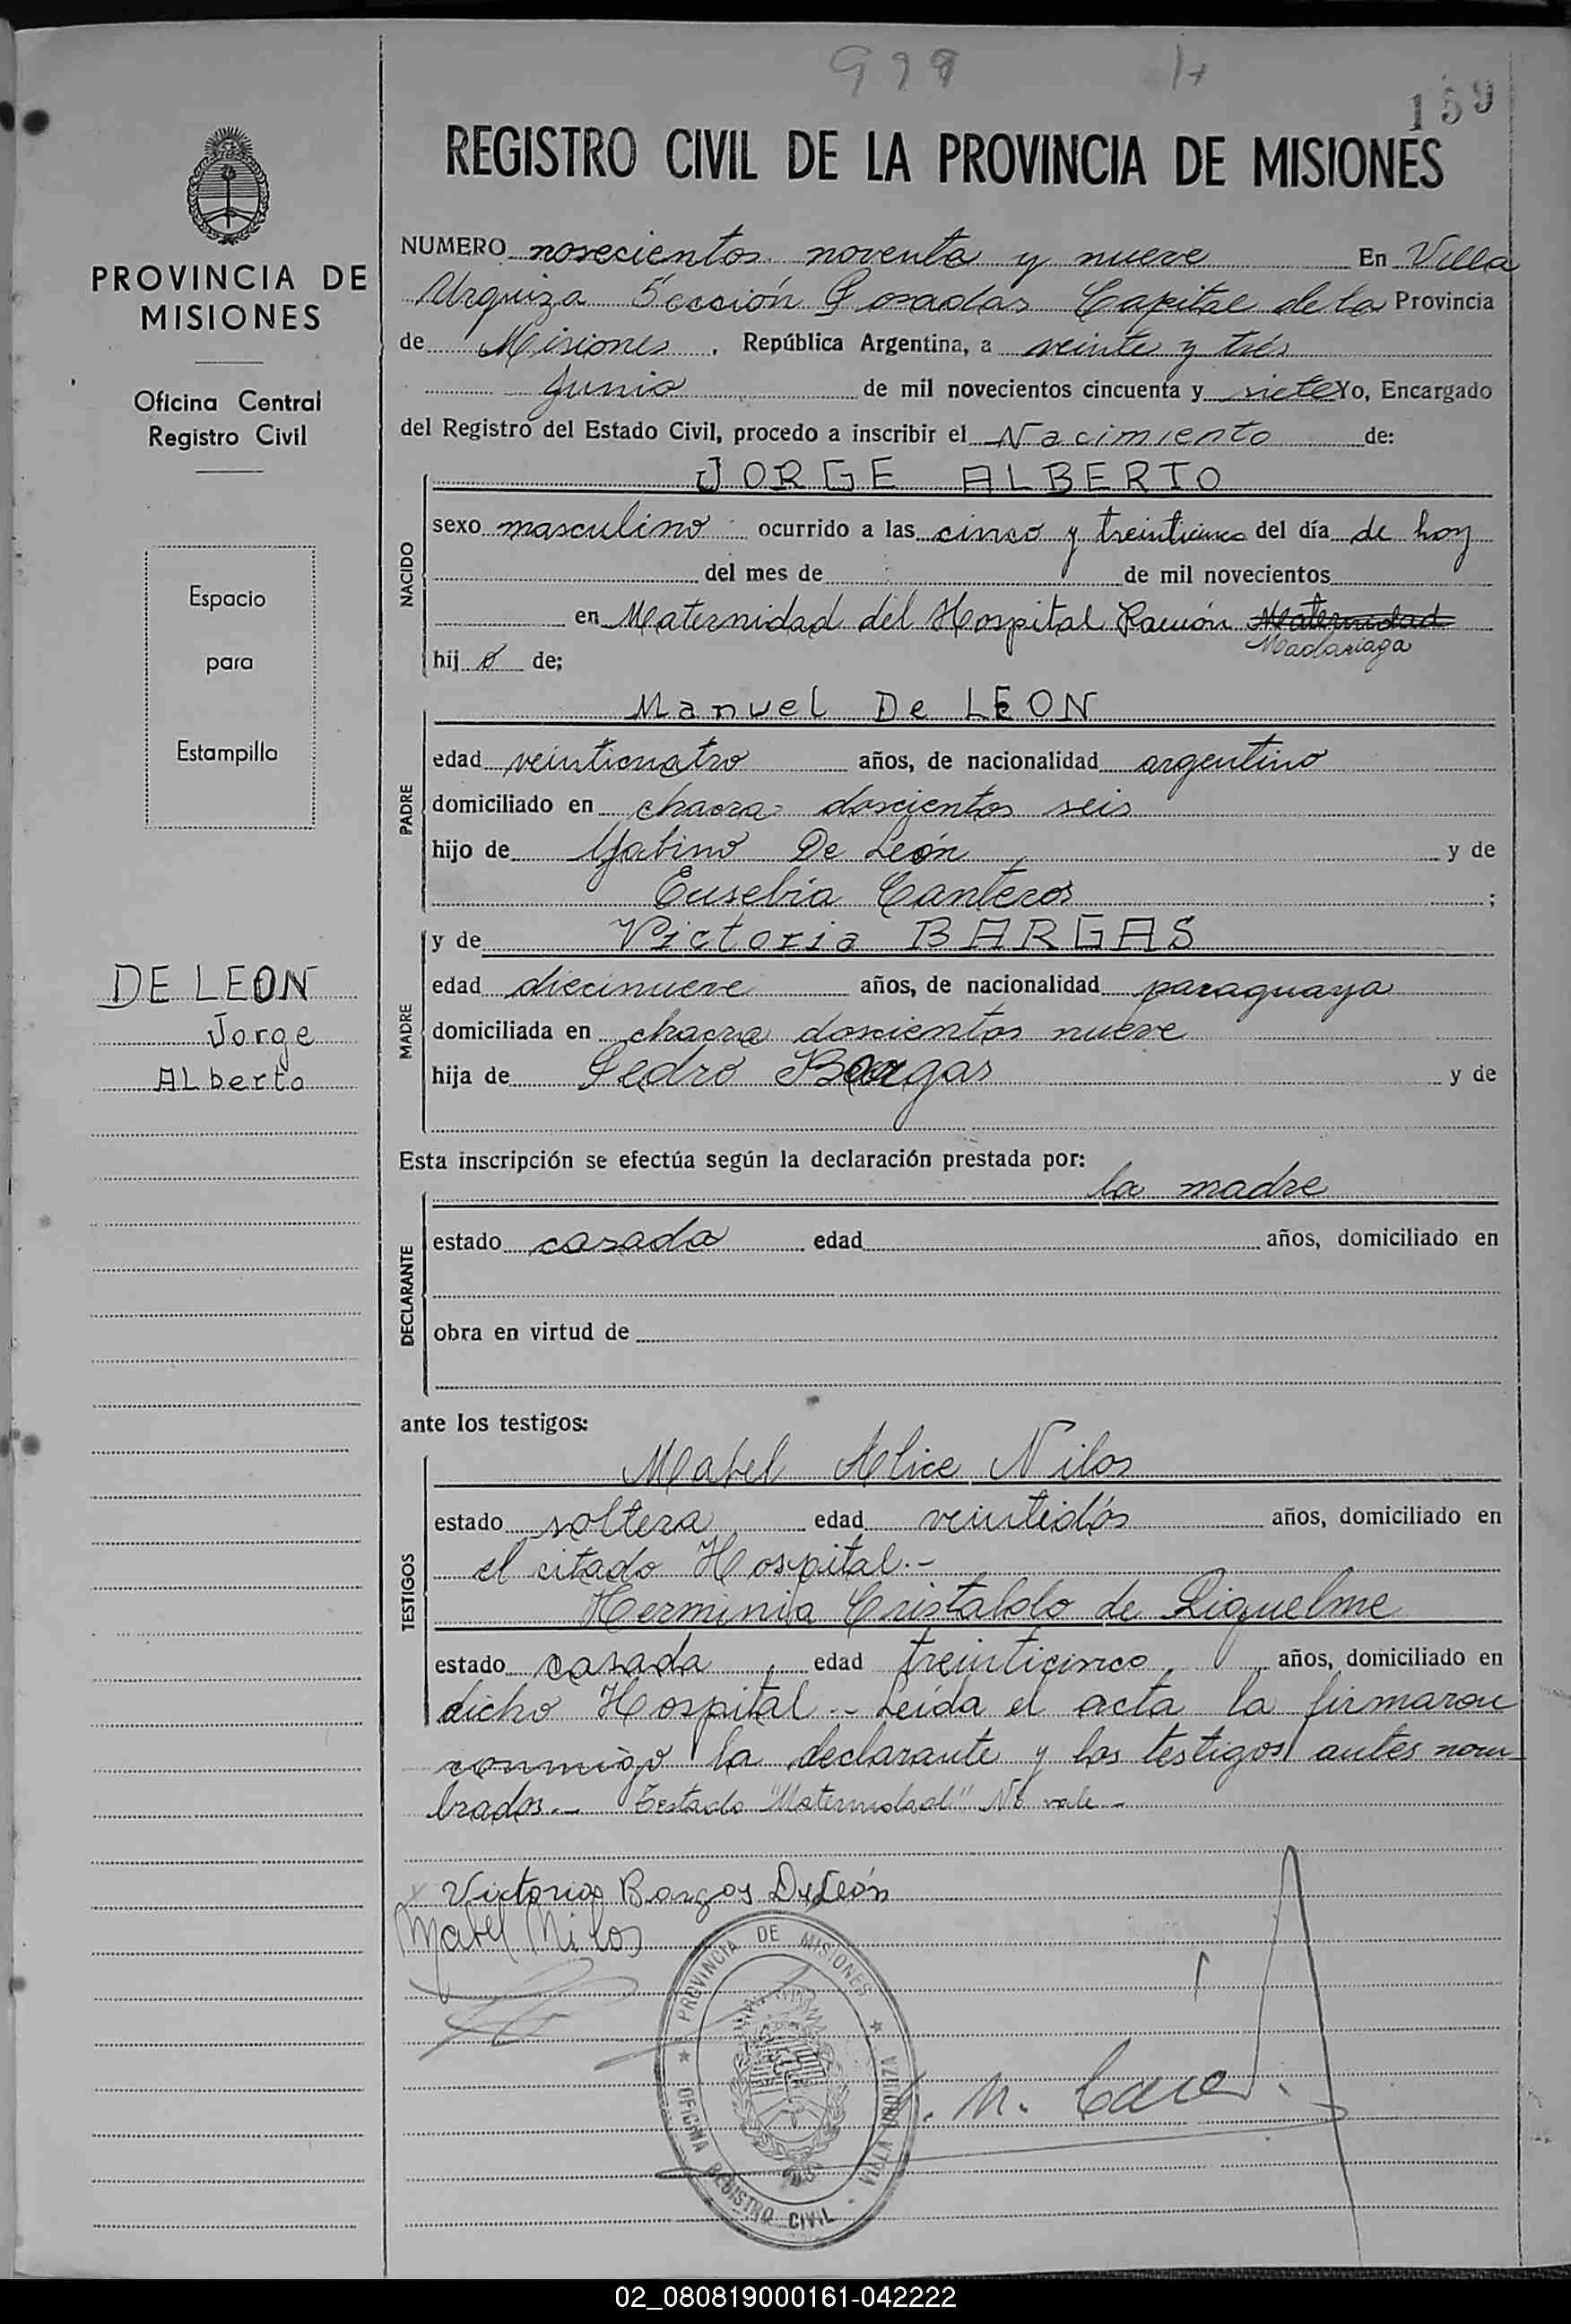 999
159
REGISTRO CIVIL DE LA PROVINCIA DE MISIONES
PROVINCIA DE
MISIONES
Oficina Central
Registro Civil
Espacio
para
Estampilla
DE LEON
Jorge
ALberto
NUMERO novecientos noventa y nueve En Villa
Urquiza Sección Posadas Capital de la Provincia
de Misiones, República Argentina, a veinte y trés
Junio de mil novecientos cincuenta y siete Yo, Encargado
del Registro del Estado Civil, procedo a inscribir el Nacimiento de:
NACIDO
JORGE ALBERTO
sexo masculino ocurrido a las cinco y treinticinco del día de hoy
del mes de de mil novecientos
en Maternidad del Hospital Ramón Maternidad
Madariaga
hijo de;
PADRE
Manuel De LEON
edad veinticuatro años, de nacionalidad argentino
domiciliado en chacra doscientos seis
hijo de Gabino De León y de
Eusebia Canteros ;
MADRE
y de Victoria BARGAS
edad diecinueve años, de nacionalidad paraguaya
domiciliada en chacra doscientos nueve
hija de Pedro Bargas y de
Esta inscripción se efectúa según la declaración prestada por:
la madre
DECLARANTE
estado casada edad años, domiciliado en
obra en virtud de
ante los testigos:
TESTIGOS
Mabel Alice Nilos
estado soltera edad veintidós años, domiciliado en
el citado Hospital.-
Herminia Cristaldo de Riquelme
estado casada, edad treinticinco, años, domiciliado en
dicho Hospital.- Leída el acta la firmaron
conmigo la declarante y los testigos antes nom
brados.- Testado "Maternidad" No vale-
Victoria Bargas De León
Mabel Nilos
PROVINCIA DE MISIONES
OFICINA REGISTRO CIVIL
VILLA URQUIZA
02_080819000161-042222